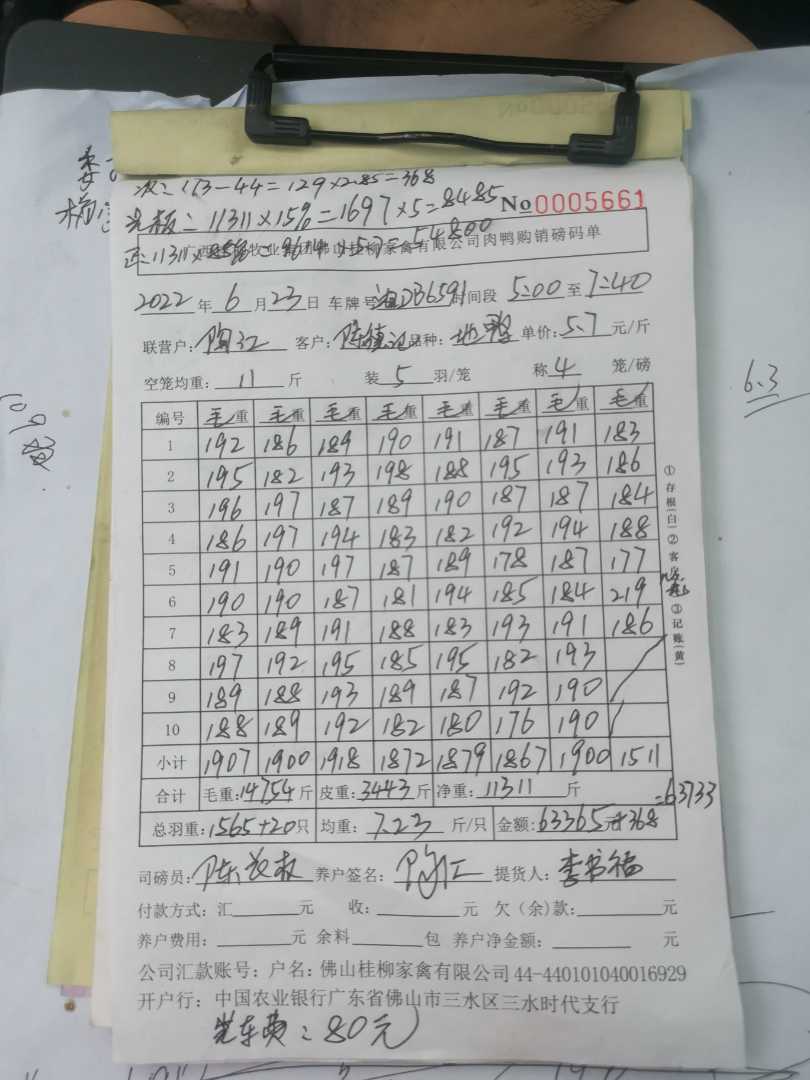 次: 173-44=129×2.85=368
光板: 11311×15%=1697×5=8485
No 0005661
正: 11311×85%=9614×5.7=54800
广西 牧业集团佛山桂柳家禽有限公司肉鸭购销磅码单
2022年6月23日 车牌号 D36591 时间段 5:00至7:40
联营户: 陶江 客户: 陈镇 品种: 地鸭 单价: 5.7元/斤
空笼均重: 11斤 装5羽/笼 称4笼/磅
编号 毛重 毛重 毛重 毛重 毛重 毛重 毛重 毛重
1 192 186 189 190 191 187 191 183
2 195 182 193 198 188 195 193 186
3 196 197 187 189 190 187 187 184
4 186 197 194 183 182 192 194 188
5 191 190 197 187 189 178 187 177
6 190 190 187 181 194 185 184 219
7 183 189 191 188 183 193 191 186
8 197 192 195 185 195 182 193
9 189 188 193 189 187 192 190
10 188 189 192 182 180 176 190
小计 1907 1900 1918 1872 1879 1867 1900 1511
合计 毛重: 14754斤 皮重: 3443斤 净重: 11311斤
=63733
总羽重: 1565+20只 均重: 7.23斤/只 金额: 63365元+368
司磅员: 陈 养户签名: 陶江 提货人: 李书福
付款方式: 汇 元 收: 元 欠(余)款: 元
养户费用: 元 余料 包 养户净金额: 元
公司汇款账号: 户名: 佛山桂柳家禽有限公司 44-440101040016929
开户行: 中国农业银行广东省佛山市三水区三水时代支行
洗车费: 80元
①存根(白)②客户 ③记账(黄)
6.3